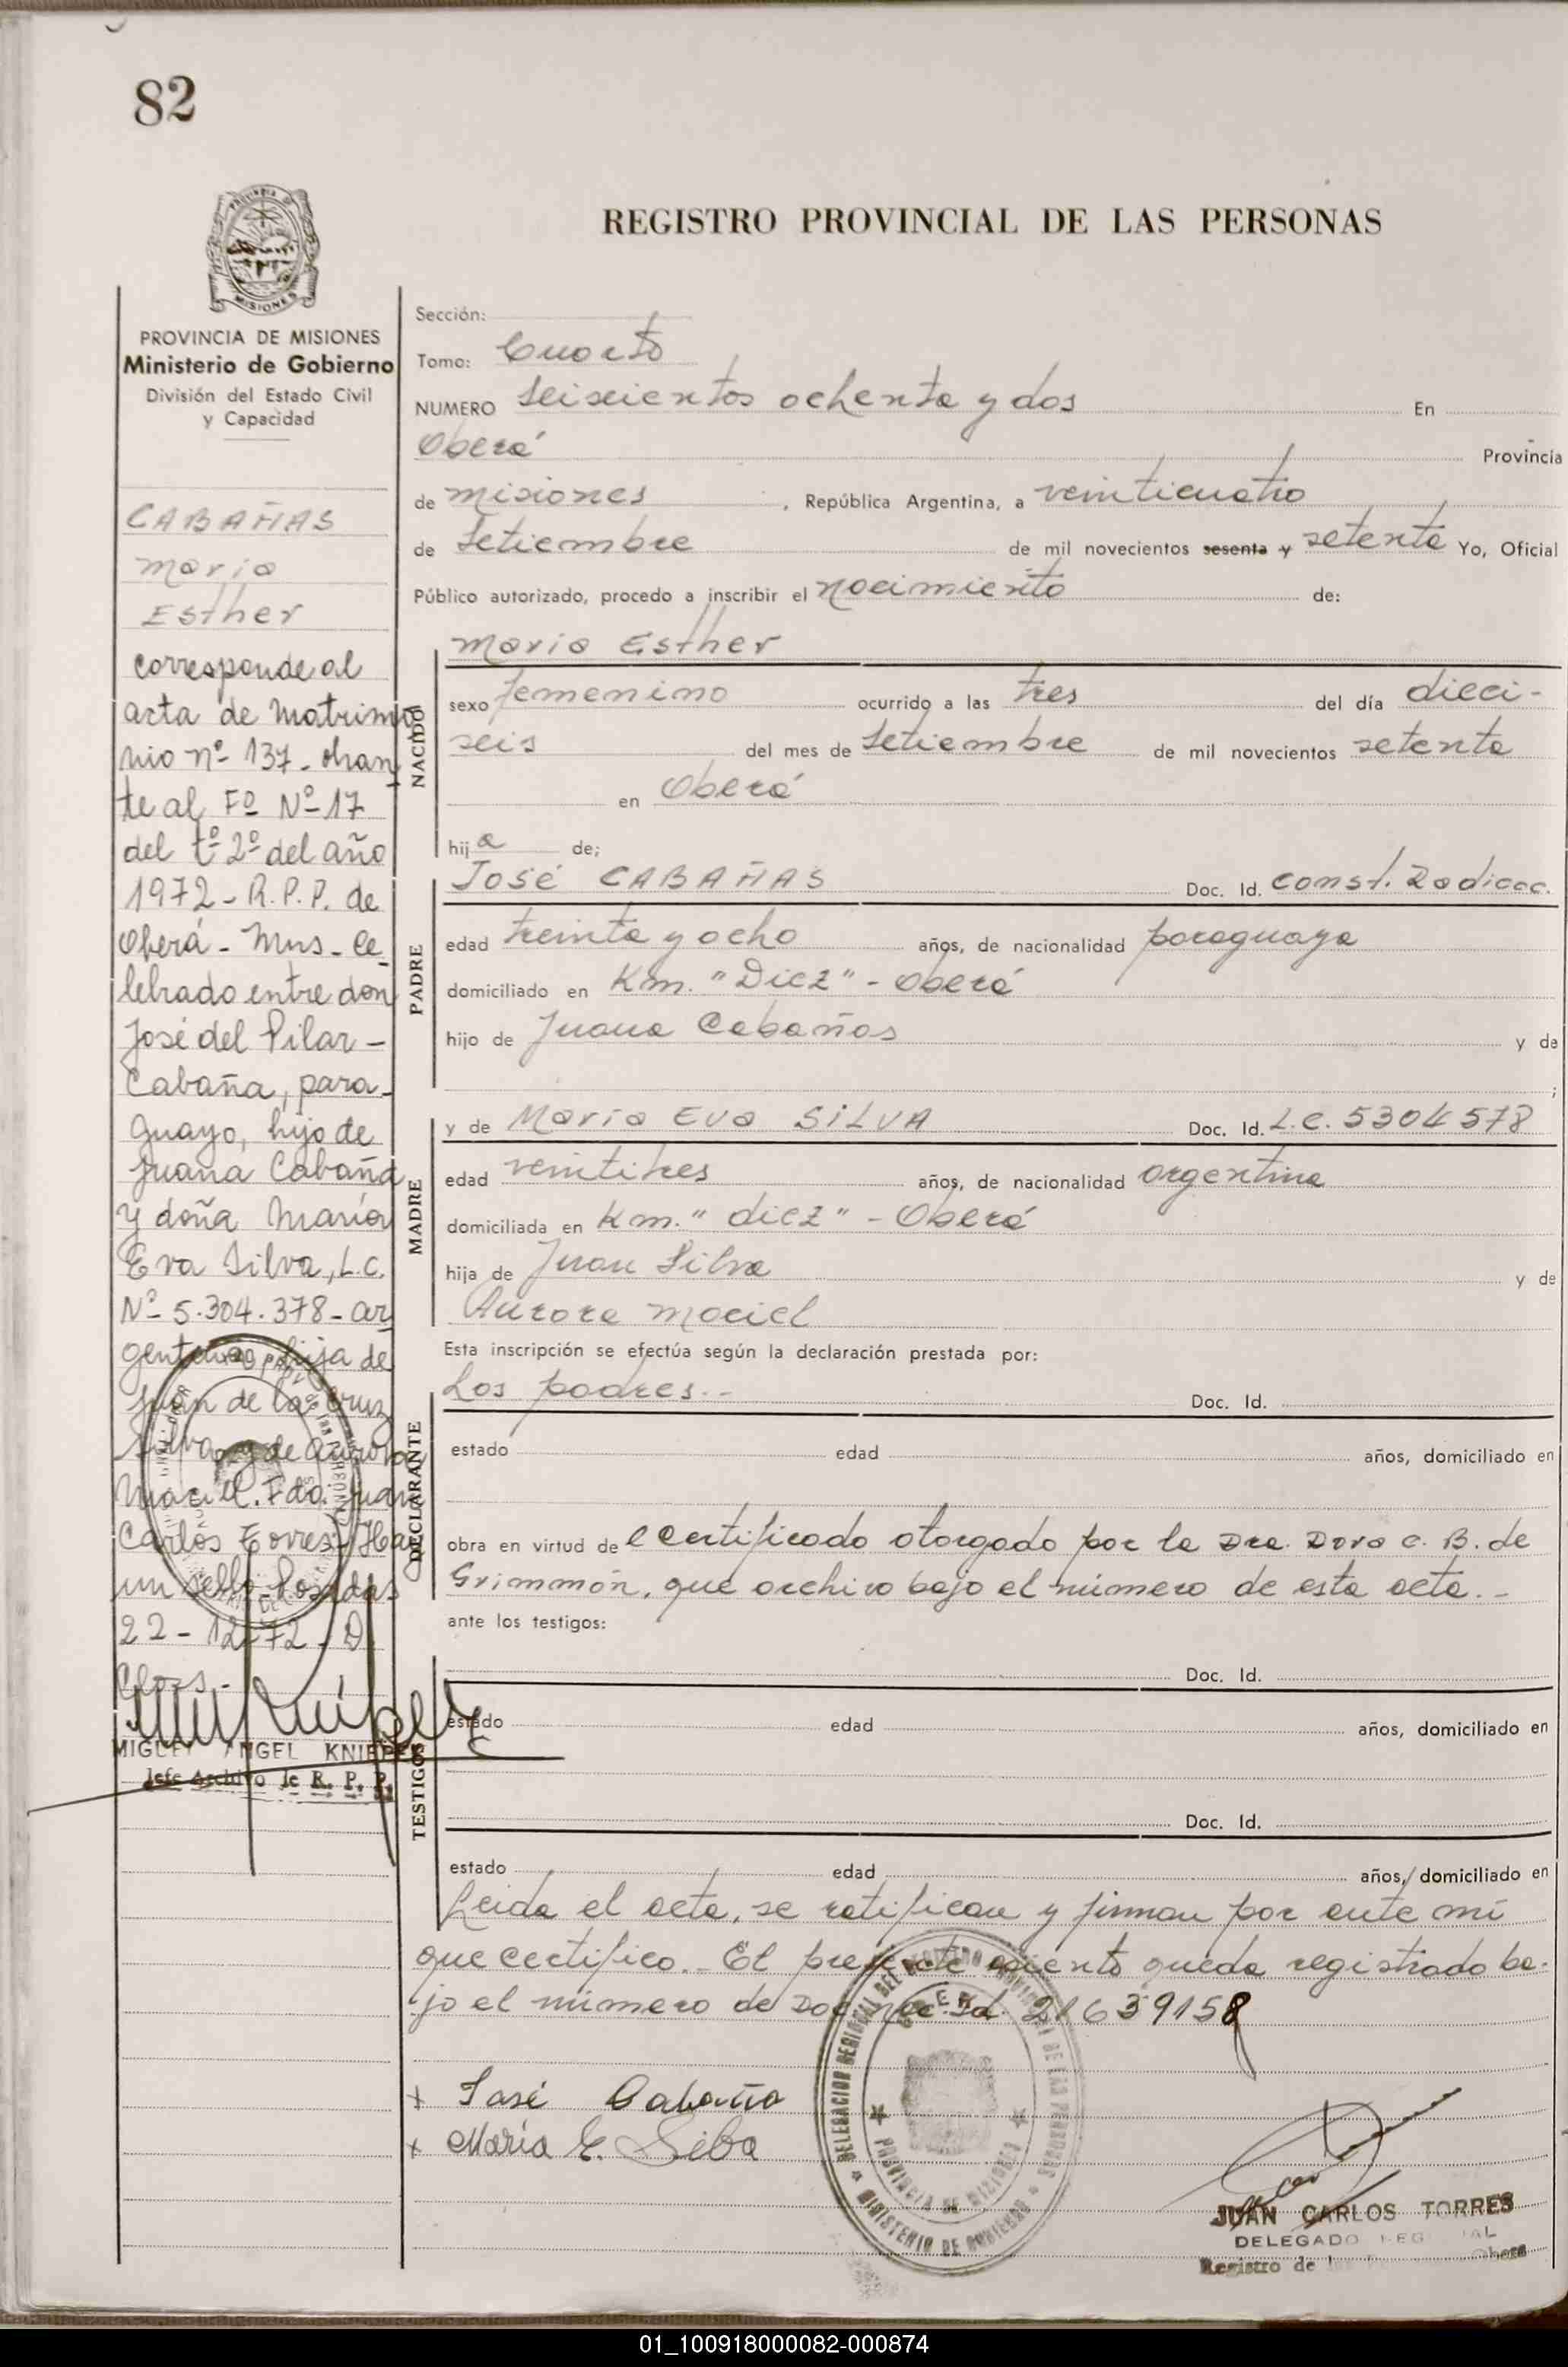 82
REGISTRO PROVINCIAL DE LAS PERSONAS
PROVINCIA DE MISIONES
Ministerio de Gobierno
División del Estado Civil
y Capacidad
CABAÑAS
Maria
Esther
corresponde al
acta de Matrimo
nio nº 137- obran
te al Fº Nº 17
del tº 2º del año
1972 - R.P.P. de
Oberá - Mns - Ce
lebrado entre don
José del Pilar -
Cabaña, para-
guayo, hijo de
Juana Cabaña
y doña María
Eva Silva, L.C.
Nº 5.304.378 - ar
gentina, hija de
Juan de la Cruz
Silva y de Aurora
Maciel. Fdo. Juan
Carlos Torres - Hay
un sello Posadas
22 - 12 - 72 - D
MIGUEL ANGEL KNIPPEL
Jefe Archivo de R. P. P.
Sección:
Tomo: Cuarto
NUMERO Seiscientos ochenta y dos En
Oberá Provincia
de Misiones, República Argentina, a veinticuatro
de Setiembre de mil novecientos sesenta y setenta Yo, Oficial
Público autorizado, procedo a inscribir el nacimiento de:
NACIDO
Maria Esther
sexo femenino ocurrido a las tres del día dieci-
seis del mes de Setiembre de mil novecientos setenta
en Oberá
hija de;
PADRE
José CABAÑAS Doc. Id. const. Radicac.
edad treinta y ocho años, de nacionalidad paraguaya
domiciliado en Km. "Diez" - Oberá
hijo de Juana Cabañas y de
;
MADRE
y de Maria Eva SILVA Doc. Id. L.C. 5304578
edad veintitres años, de nacionalidad argentina
domiciliada en Km. "diez" - Oberá
hija de Juan Silva y de
Aurora Maciel
Esta inscripción se efectúa según la declaración prestada por:
DECLARANTE
Los padres.- Doc. Id.
estado edad años, domiciliado en
obra en virtud del Certificado otorgado por la Dra. Dora C. B. de
Grimmón, que archivo bajo el número de esta acta.-
ante los testigos:
TESTIGOS
Doc. Id.
estado edad años, domiciliado en
Doc. Id.
estado edad años, domiciliado en
Leida el acta, se ratifican y firman por ante mí
que certifico.- El presente asiento queda registrado ba-
jo el número de Doc. Nac. Id. 21639158
x José Cabaña
x María E. Silba
DELEGACION REGIONAL DEL REGISTRO PROVINCIAL DE LAS PERSONAS
OBERA
PROVINCIA DE MISIONES
MINISTERIO DE GOBIERNO
JUAN CARLOS TORRES
DELEGADO REGIONAL
Registro de las Obera
01_100918000082-000874